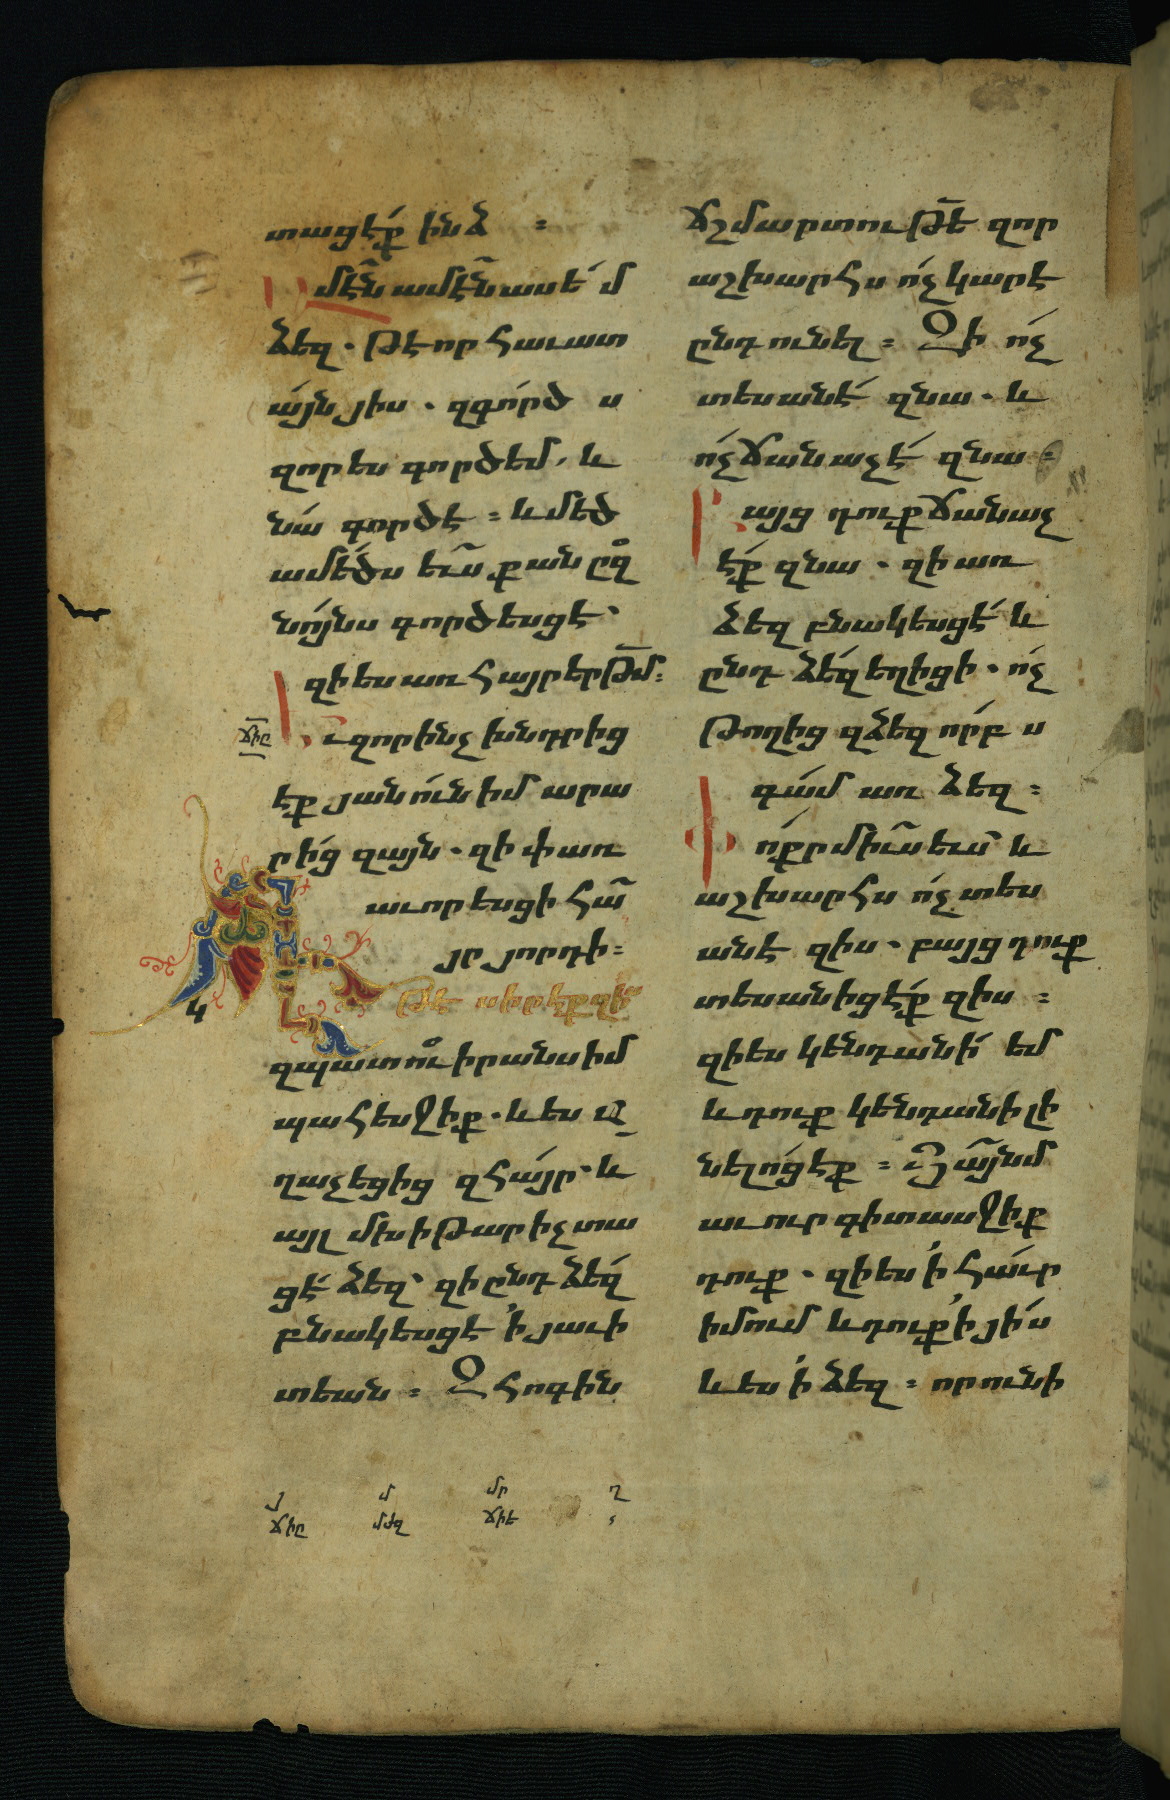 տացէք ինձ ։
Ամէ՜ն ամէ՜ն ասեմ
ձեզ . թէ որ հաւատ
այն յիս . զգործս
զոր ես գործեմ . և
նա գործէ ։ և մեծ
ամեծս ևս քան զ
նոյնս գործեսցէ ՝
զի ես առ հայր երթմ ։
ճիը
Եւ զոր ինչ խնդրից
էք յանուն իմ արա
րից զայն . զի փառ
աւորեսցի հա
յր յորդի ։
Կ
Եթէ սիրէք զիս
զպատուիրանս իմ
պահեսջիք . և ես ա
ղաչեցից զհայր . և
այլ մխիթարիչ տա
ցէ ձեզ ՝ զի ընդ ձեզ
բնակեսցէ ՛ի յաւի
տեան ։ Զհոգին
ճշմարտութե զոր
աշխարհս ոչ կարէ
ընդունել ։ Զի ոչ
տեսանէ զնա . և
ոչ ճանաչէ զնա ։
Բայց դուք ճանաչ
էք զնա . զի առ
ձեզ բնակեսցէ և
ընդ ձեզ եղիցի . ոչ
թողից զձեզ որբս
գամ առ ձեզ ։
Փոքր մի ևս ևս և
աշխարհս ոչ տես
անէ զիս . բայց դուք
տեսանիցէք զիս ։
զի ես կենդանի եմ
և դուք կենդանի լի
նելոցէք ։ Յայնմ
աւուր գիտասջիք
դուք . զի ես ՛ի հաւր
իմում և դուք ՛ի յիս
և ես ՛ի ձեզ ։ որ ունի
յ մ մր ղ
ճիը մժզ ճիե